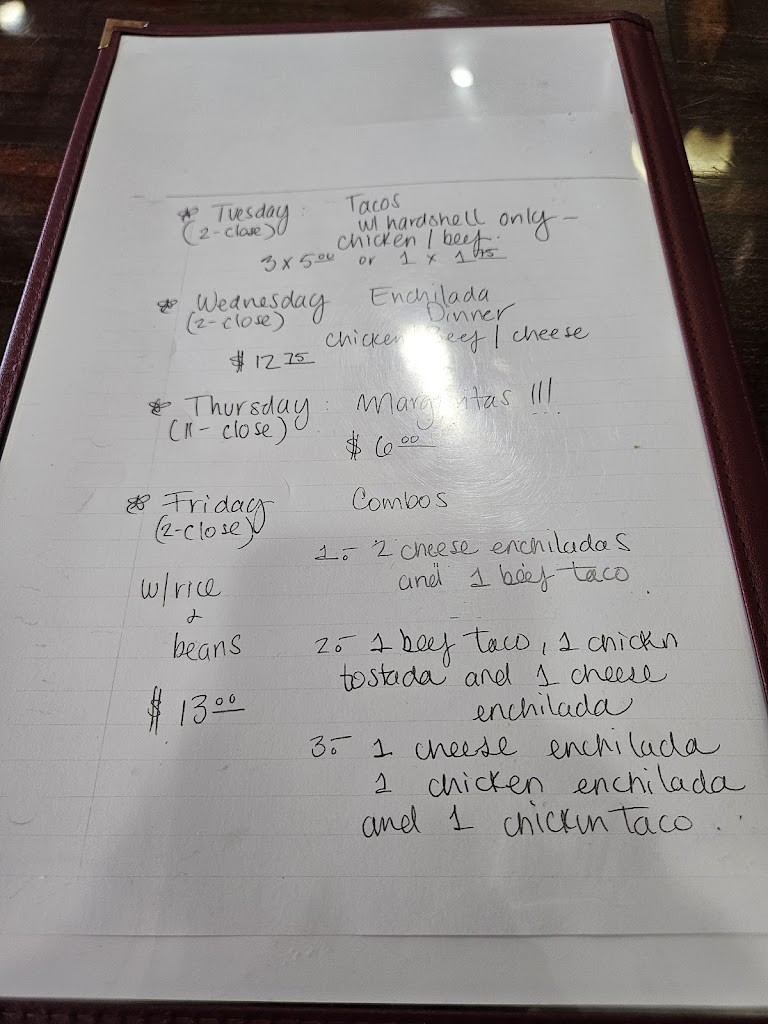 * Tuesday : Tacos
(2-close) w/ hardshell only -
chicken / beef.
3 x 5.00 or 1 x 1.75
* Wednesday Enchilada
(2-close) Dinner
chicken / Beef / cheese
$ 12.75
* Thursday : Margaritas !!!
(11- close)
$ 6.00
* Friday Combos
(2-close)
1.- 2 cheese enchiladas
and 1 beef taco.
w/rice
&
beans
$ 13.00
2.- 1 beef taco, 1 chickn
tostada and 1 cheese
enchilada
3.- 1 cheese enchilada
1 chicken enchilada
and 1 chicken Taco.